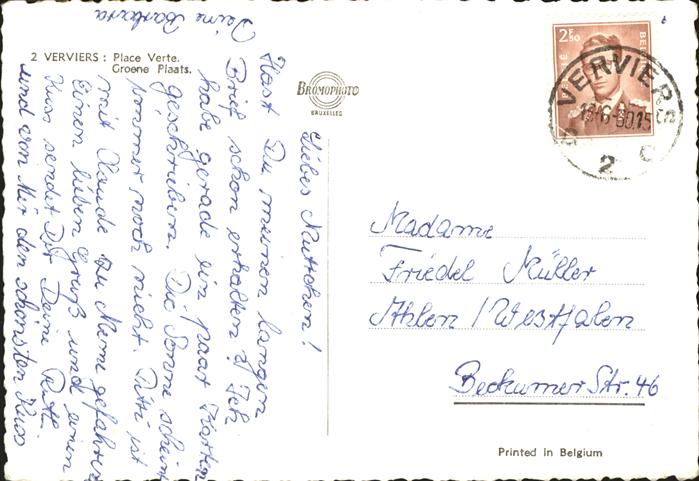 2 VERVIERS : Place Verte.
Groene Plaats.
BROMOPHOTO
BRUXELLES
Liebes Muttchen!
Hast Du meinen langen
Brief schon erhalten? Ich
habe gerade ein paar Karten
geschrieben. Die Sonne scheint
immer noch nicht. Putti ist
mit Claude zu Mumi gefahren
Einen lieben Gruß und einen
Kuss sendet Dir Deine
und von Mir den schönsten Kuss
Deine Barbara
2F50
VERVIERS
2
Madame
Friedel Müller
Ahlen / Westfalen
Beckumer Str. 46
Printed in Belgium